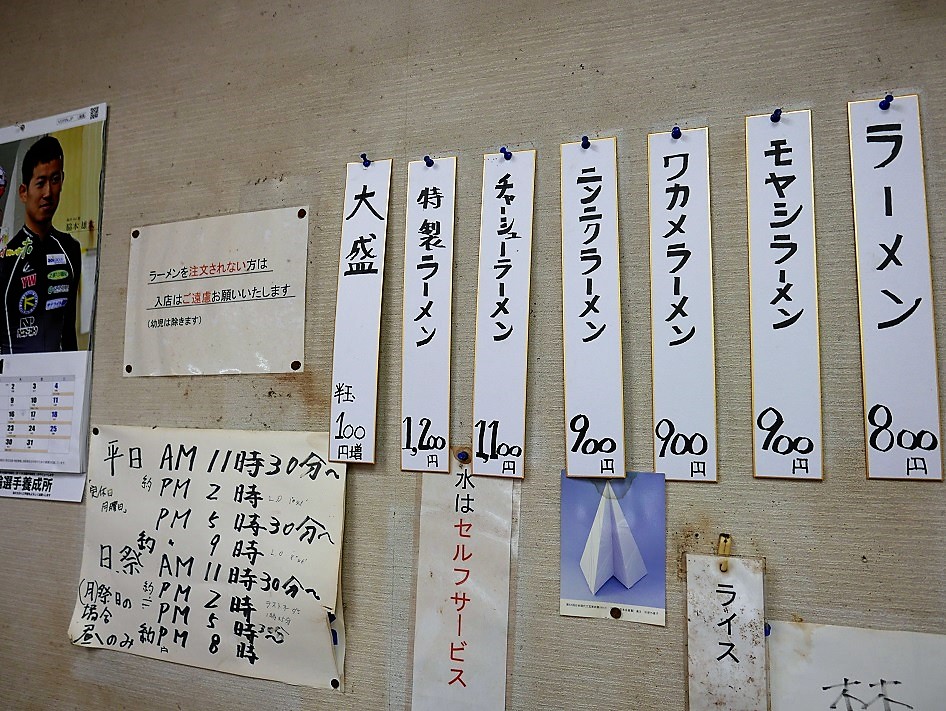 ラーメン
800円
モヤシラーメン
900円
ワカメラーメン
900円
ニンニクラーメン
900円
チャーシューラーメン
1,100円
特製ラーメン
1,200円
大盛
半玉
100
円増
ラーメンを注文されない方は
入店はご遠慮お願いいたします
(幼児は除きます)
平日 AM 11時30分へ
約 PM 2時
PM 5時30分へ
約 〃 9時
日祭 AM 11時30分へ
約 PM 2時
PM 5時
約 PM 8時
定休日
月曜日
(月)祭日の
場合
昼のみ
水はセルフサービス
ライス
2 3 4
9 10 11
16 17 18
23 24 25
30 31
選手養成所